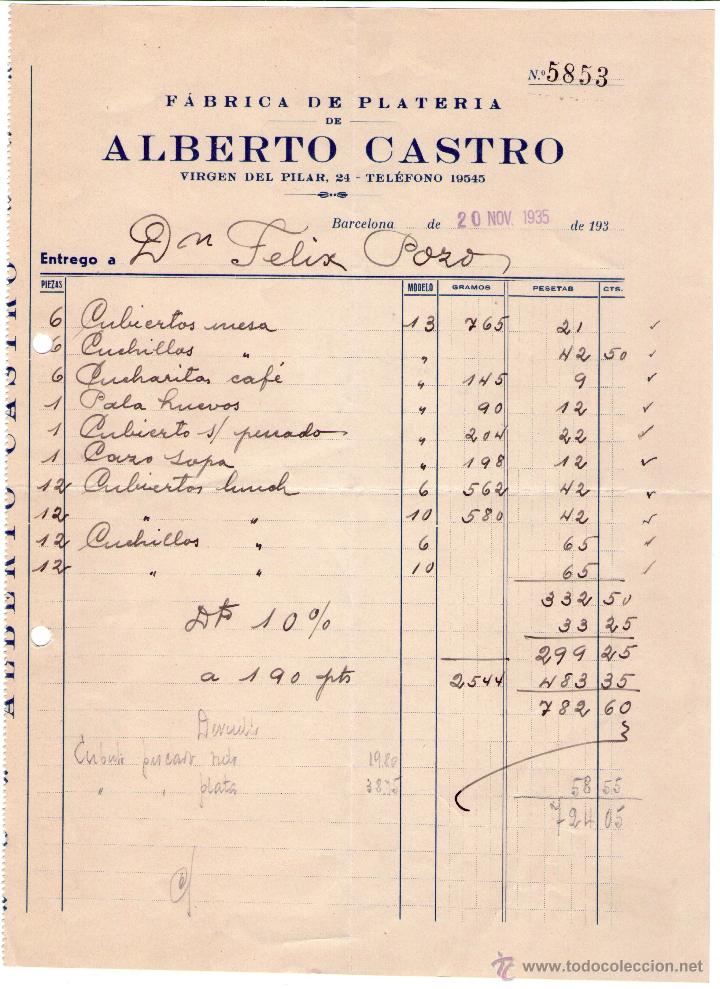 Nº 5853
FÁBRICA DE PLATERIA
DE
ALBERTO CASTRO
VIRGEN DEL PILAR, 24 - TELÉFONO 19545
Barcelona de 20 NOV. 1935 de 193
Entrego a Dn Felix Pozo
PIEZAS MODELO GRAMOS PESETAS CTS.
6 Cubiertos mesa 13 765 21
6 Cuchillos " " 42 50
6 Cucharitas café " 145 9
1 Pala huevos " 90 12
1 Cubierto s/ pescado " 204 22
1 Cazo sopa " 198 12
12 Cubiertos lunch 6 562 42
12 " " 10 580 42
12 Cuchillos " 6 65
12 " " 10 65
332 50
Dto 10% 33 25
299 25
a 190 pts 2544 483 35
782 60
19.80
" " plata 38.75 58 55
724 05
ALBERTO CASTRO
www.todocoleccion.net